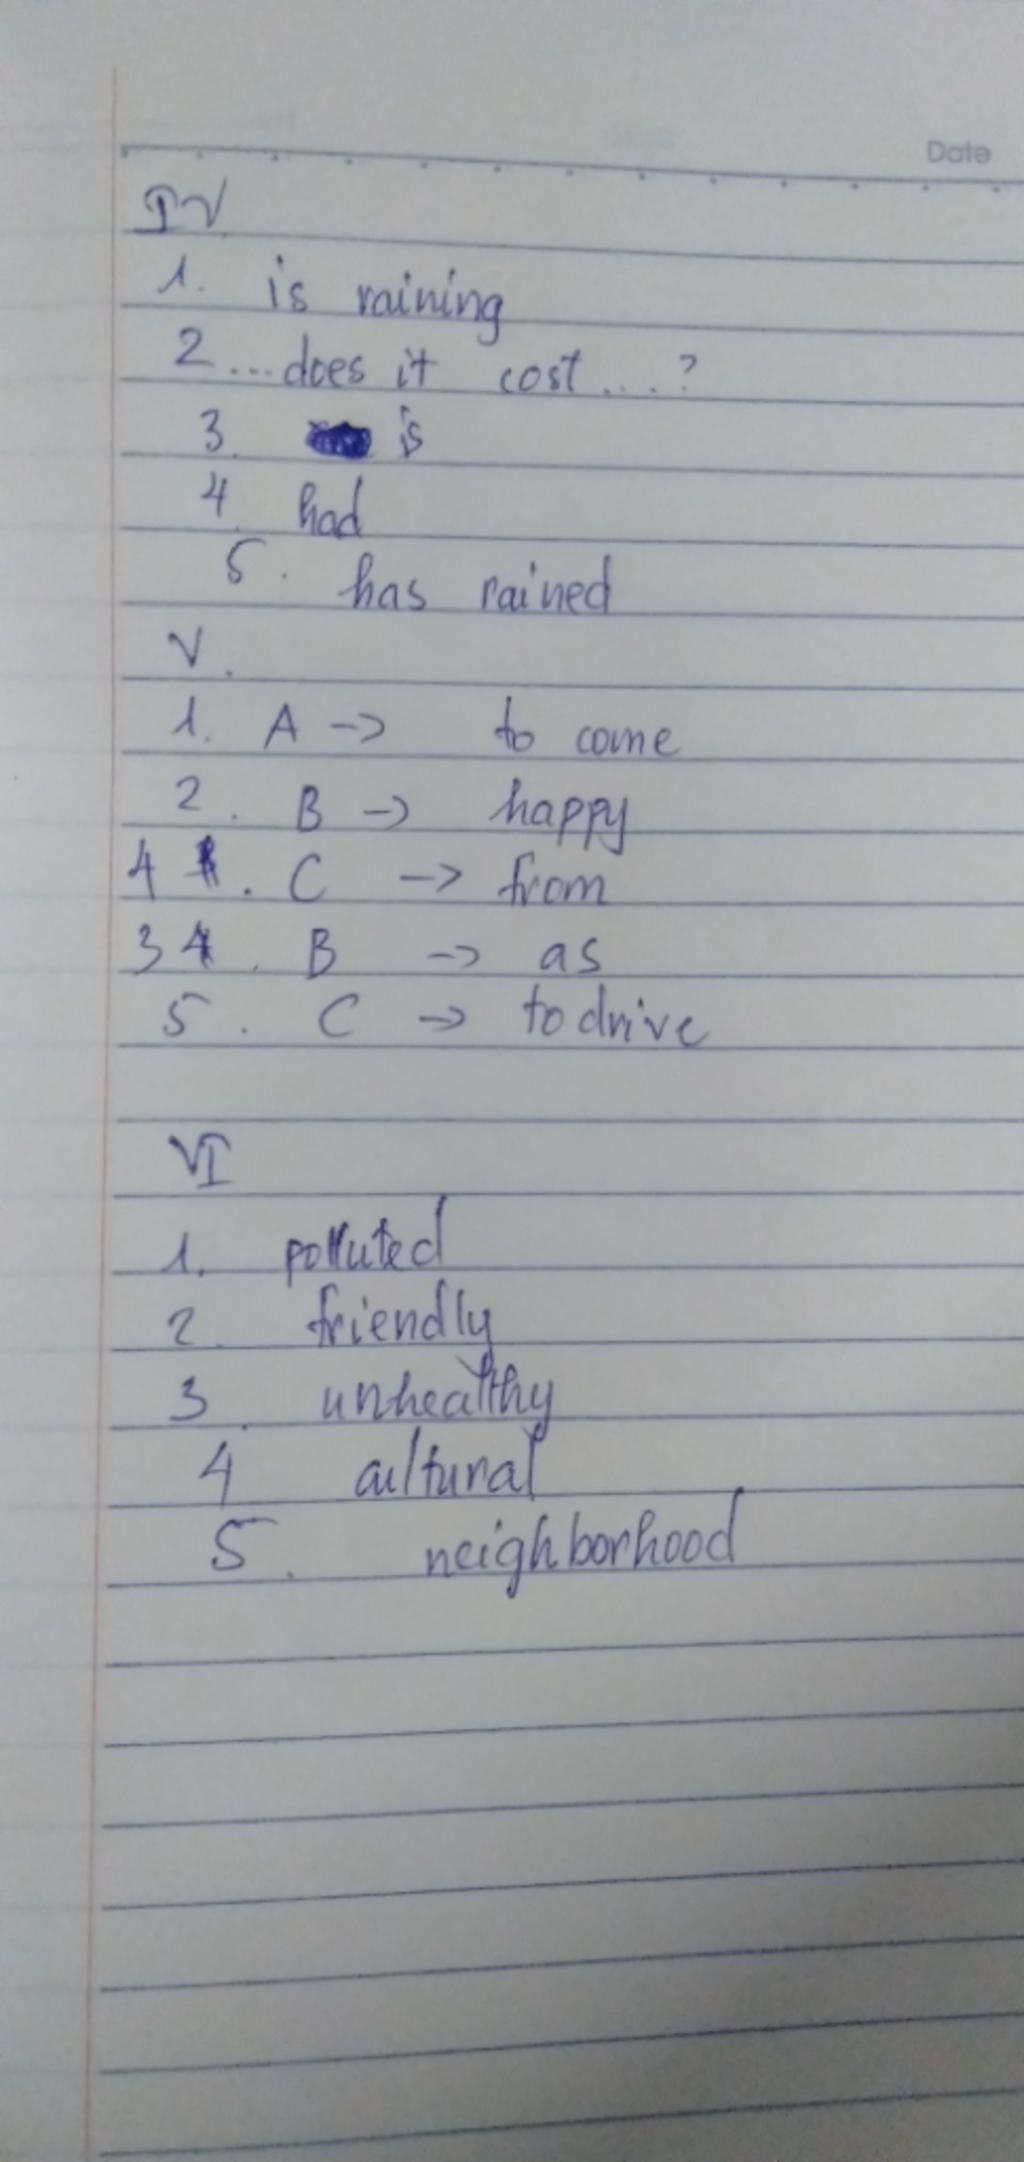 Date
IV
1. is raining
2 ... does it cost .... ?
3. is
4. had
5. has rained
V.
1. A -> to come
2. B -> happy
4. C -> from
3 4. B -> as
5. C -> to drive
VI
1. polluted
2. friendly
3. unhealthy
4 cultural
5. neighborhood